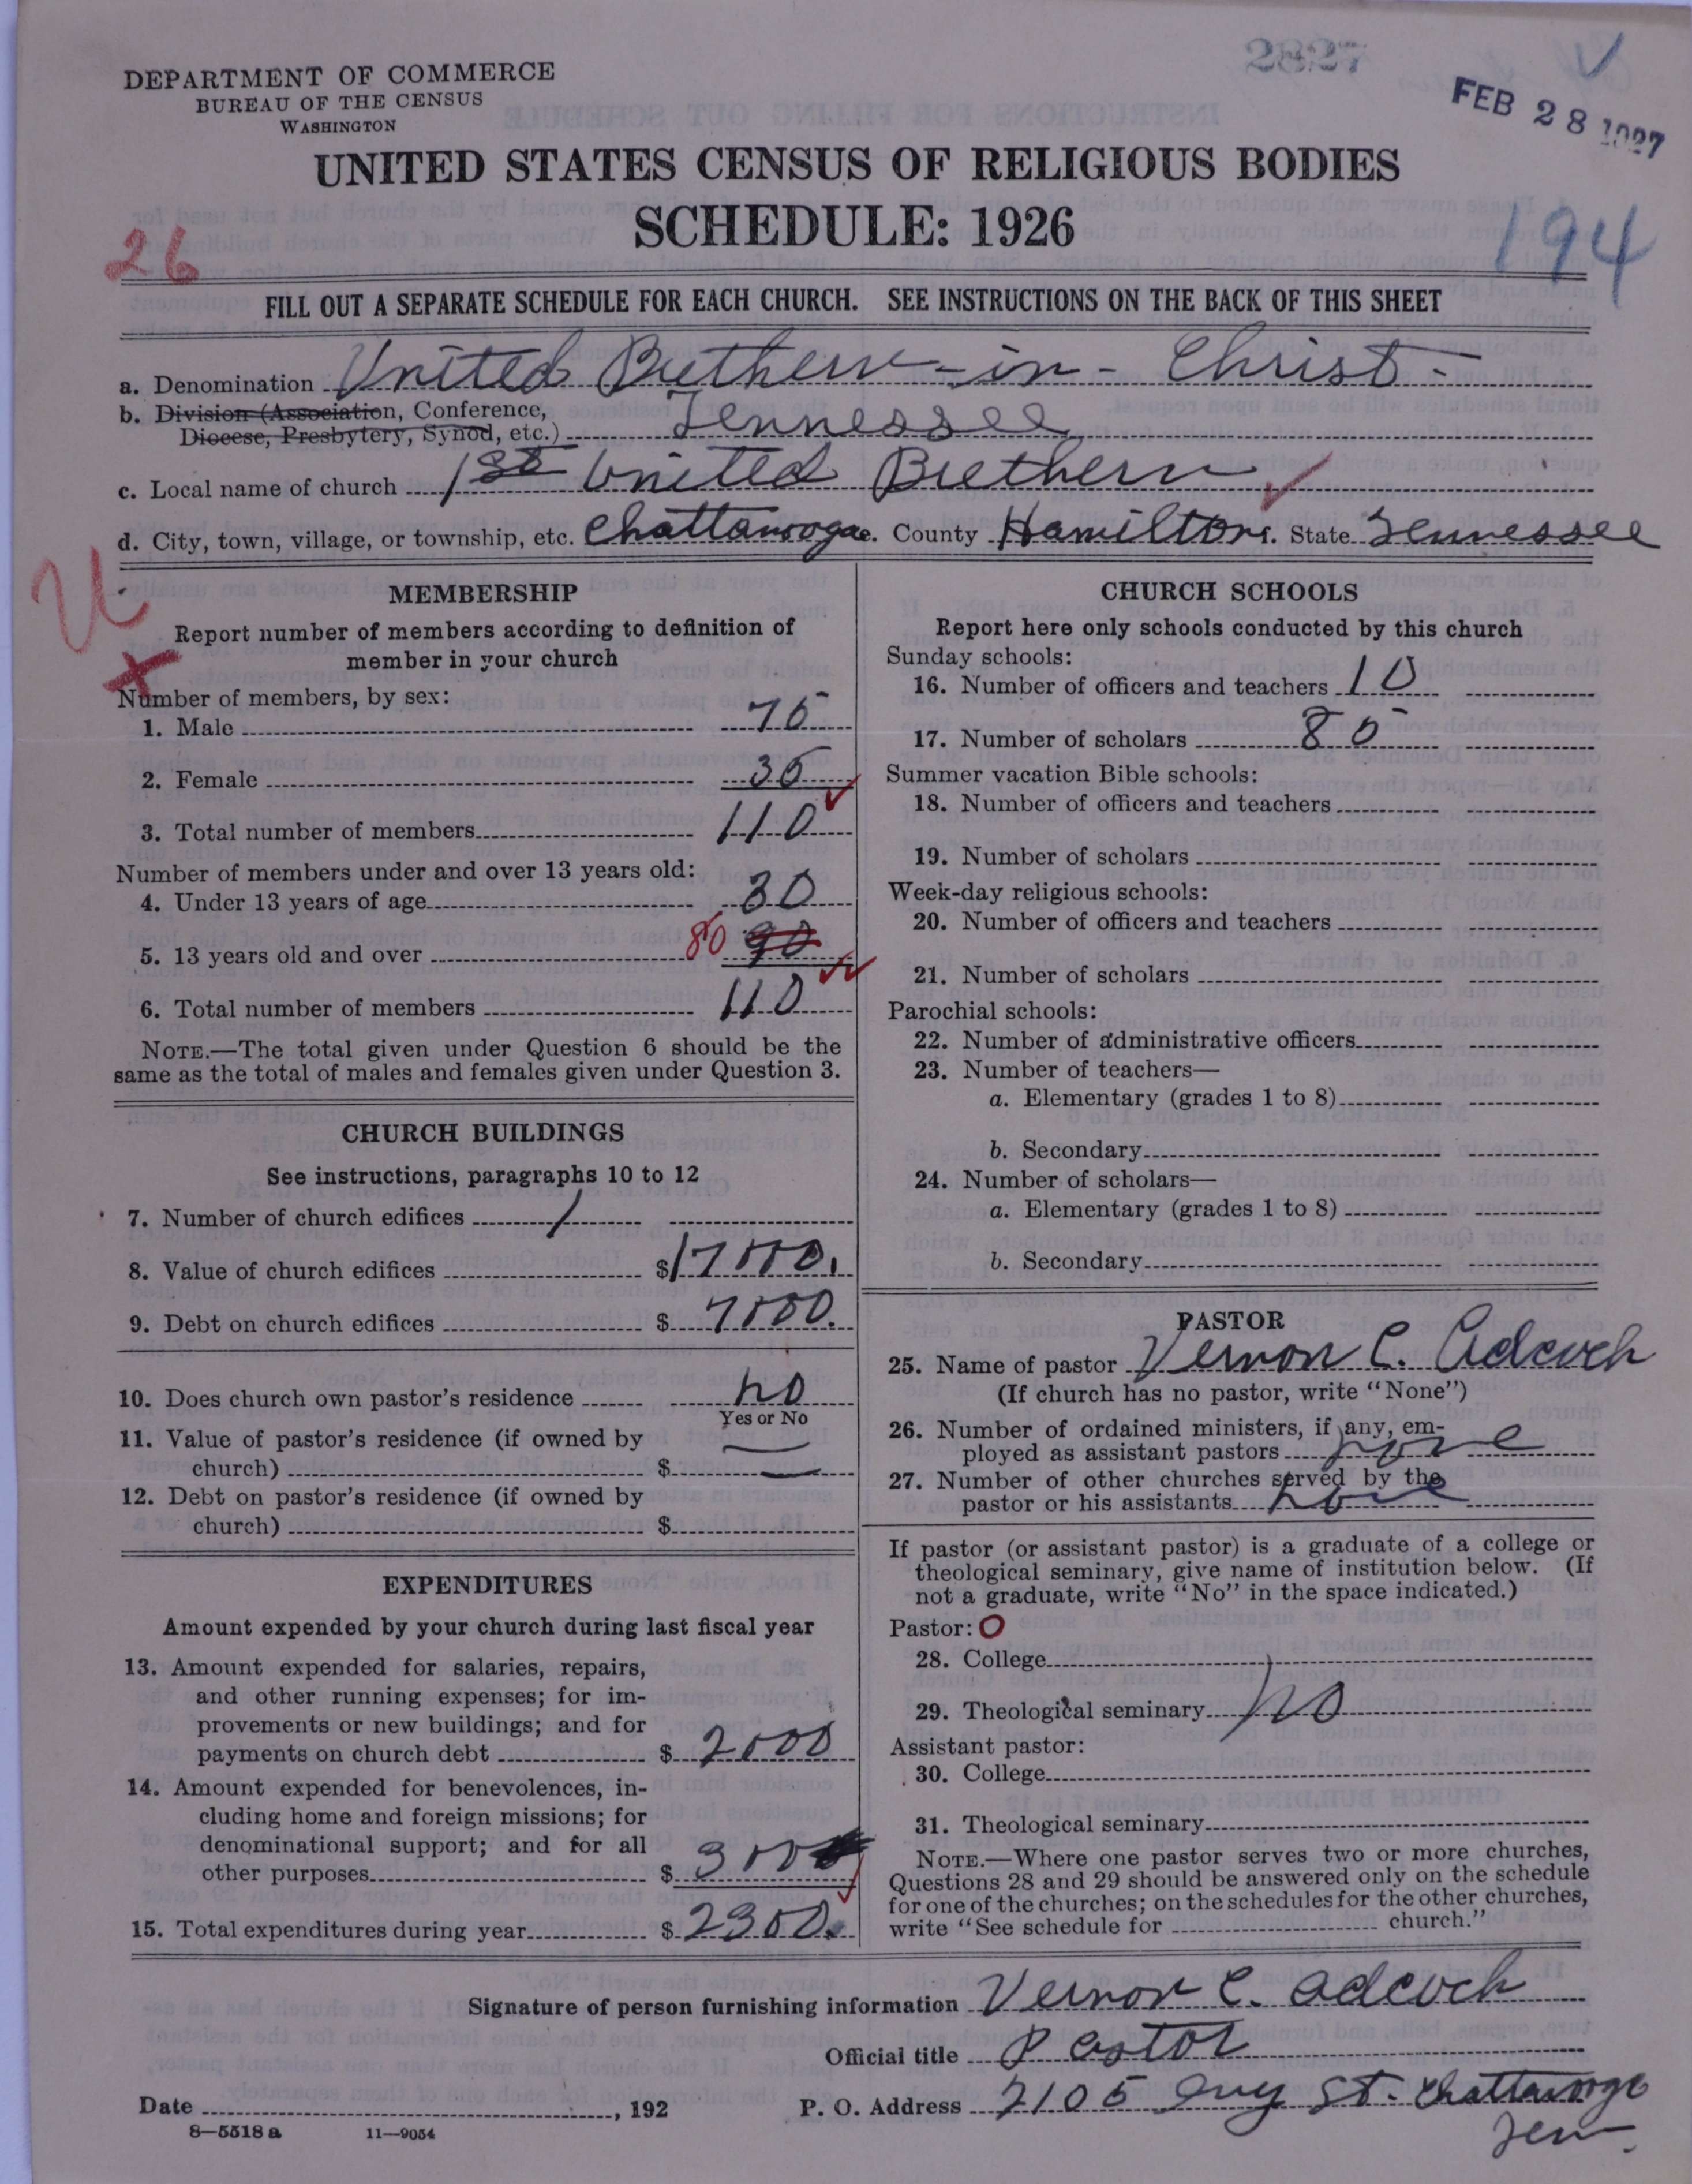 2827
FEB 28 1927
DEPARTMENT OF COMMERCE
BUREAU OF THE CENSUS
WASHINGTON
UNITED STATES CENSUS OF RELIGIOUS BODIES
SCHEDULE: 1926
26
194
FILL OUT A SEPARATE SCHEDULE FOR EACH CHURCH. SEE INSTRUCTIONS ON THE BACK OF THIS SHEET
a. Denomination United Brethern - in - Christ -
b. Division (Association, Conference,
Diocese, Presbytery, Synod, etc.) Tennessee
c. Local name of church 1st United Brethern
d. City, town, village, or township, etc. Chattanooga. County Hamilton. State Tennessee
U
MEMBERSHIP
Report number of members according to definition of
member in your church
Number of members, by sex:
1. Male 75
2. Female 35
3. Total number of members 110
Number of members under and over 13 years old:
4. Under 13 years of age 30
5. 13 years old and over 80 90
6. Total number of members 110
NOTE.—The total given under Question 6 should be the
same as the total of males and females given under Question 3.
CHURCH BUILDINGS
See instructions, paragraphs 10 to 12
7. Number of church edifices 1
8. Value of church edifices $17000.
9. Debt on church edifices $ 7000.
10. Does church own pastor's residence no
Yes or No
11. Value of pastor's residence (if owned by
church) $ —
12. Debt on pastor's residence (if owned by
church) $
EXPENDITURES
Amount expended by your church during last fiscal year
13. Amount expended for salaries, repairs,
and other running expenses; for im-
provements or new buildings; and for
payments on church debt $ 2000
14. Amount expended for benevolences, in-
cluding home and foreign missions; for
denominational support; and for all
other purposes $ 300
15. Total expenditures during year $ 2300.
CHURCH SCHOOLS
Report here only schools conducted by this church
Sunday schools:
16. Number of officers and teachers 10
17. Number of scholars 85
Summer vacation Bible schools:
18. Number of officers and teachers
19. Number of scholars
Week-day religious schools:
20. Number of officers and teachers
21. Number of scholars
Parochial schools:
22. Number of administrative officers
23. Number of teachers—
a. Elementary (grades 1 to 8)
b. Secondary
24. Number of scholars—
a. Elementary (grades 1 to 8)
b. Secondary
PASTOR
25. Name of pastor Vernon C. Adcock
(If church has no pastor, write "None")
26. Number of ordained ministers, if any, em-
ployed as assistant pastors none
27. Number of other churches served by the
pastor or his assistants none
If pastor (or assistant pastor) is a graduate of a college or
theological seminary, give name of institution below. (If
not a graduate, write "No" in the space indicated.)
Pastor: O
28. College
29. Theological seminary no
Assistant pastor:
30. College
31. Theological seminary
NOTE.—Where one pastor serves two or more churches,
Questions 28 and 29 should be answered only on the schedule
for one of the churches; on the schedules for the other churches,
write "See schedule for church."
Signature of person furnishing information Vernon C. Adcock
Official title Pastor
Date , 192
P. O. Address 2105 Ivy St. Chattanooga
Ten.
8—5518 a 11—9054